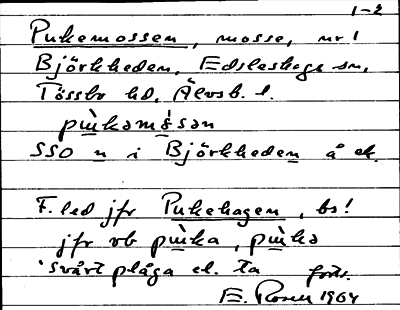 1-2
Pukemossen, mosse, nr 1
Björkheden, Edsleskogs sn,
Tössbo hd, Älvsb. l.
pɯ̀kamɷ̀san
SSO n i Björkheden å ek.
F. led jfr Pukehagen, bs!
jfr vb pɯ̀ka, pɯ̀kə
'svårt plåga el. ta forts.
E. Rosell 1964